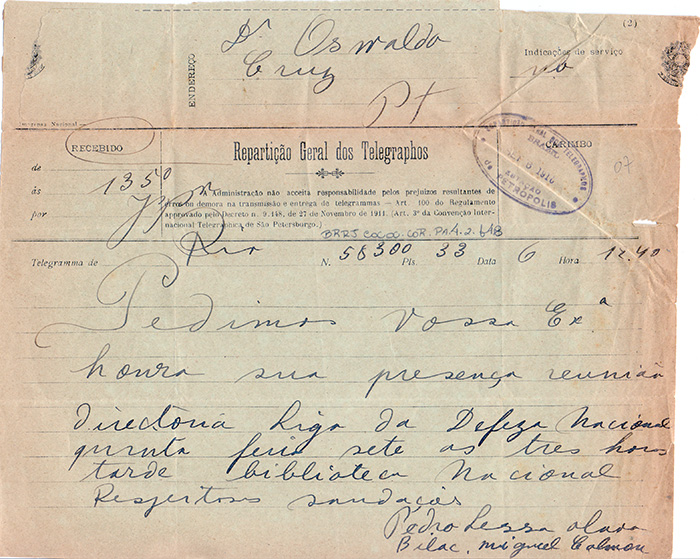 (2)
Dr. Oswaldo
Cruz
Pt
ENDEREÇO
Indicações de serviço
Imprensa Nacional
RECEBIDO
de
às 1350
por
Repartição Geral dos Telegraphos
A Administração não acceita responsabilidade pelos prejuizos resultantes de
erros ou demora na transmissão e entrega de telegrammas — Art. 100 do Regulamento
approvado pelo Decreto n. 9.148, de 27 de Novembro de 1911. (Art. 3º da Convenção Inter-
nacional Telegraphica de São Petersburgo.)
CARIMBO
REPARTIÇÃO GERAL DOS TELEGRAPHOS
BRASIL
6 1916
ESTAÇÃO
de PETROPOLIS
07
BRRJ COCOC.COR.PA.4.2.
Telegramma de Rio N. 58300 Pls. 33 Data 6 Hora 12.40
Pedimos Vossa Ex.a
honra sua presença reunião
directoria Liga da Defeza Nacional
quinta feira sete as tres horas
tarde bibliotheca Nacional
Respeitosas saudações
Pedro Lessa Olavo
Bilac. Miguel Calmon